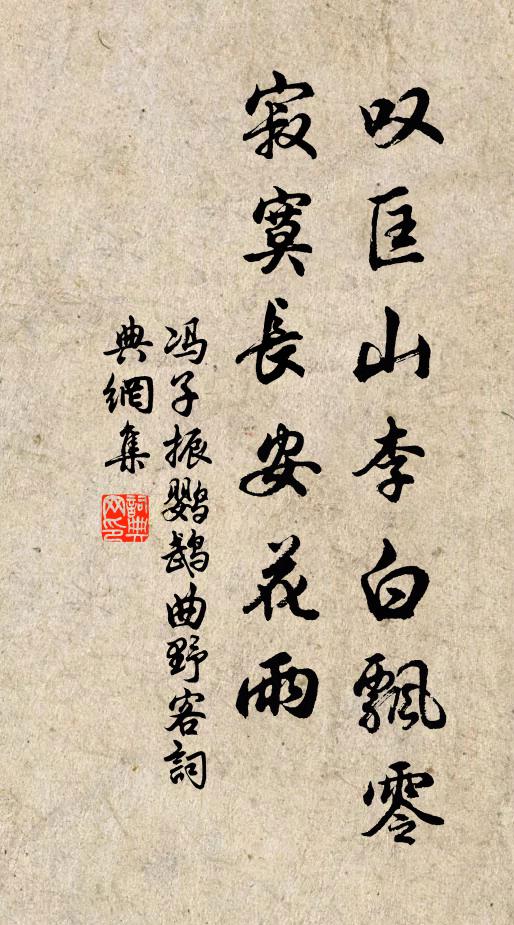 叹匡山李白飘零
寂寞長安花雨
冯子振鹦鹉曲野客詞
典網集
詞典网印